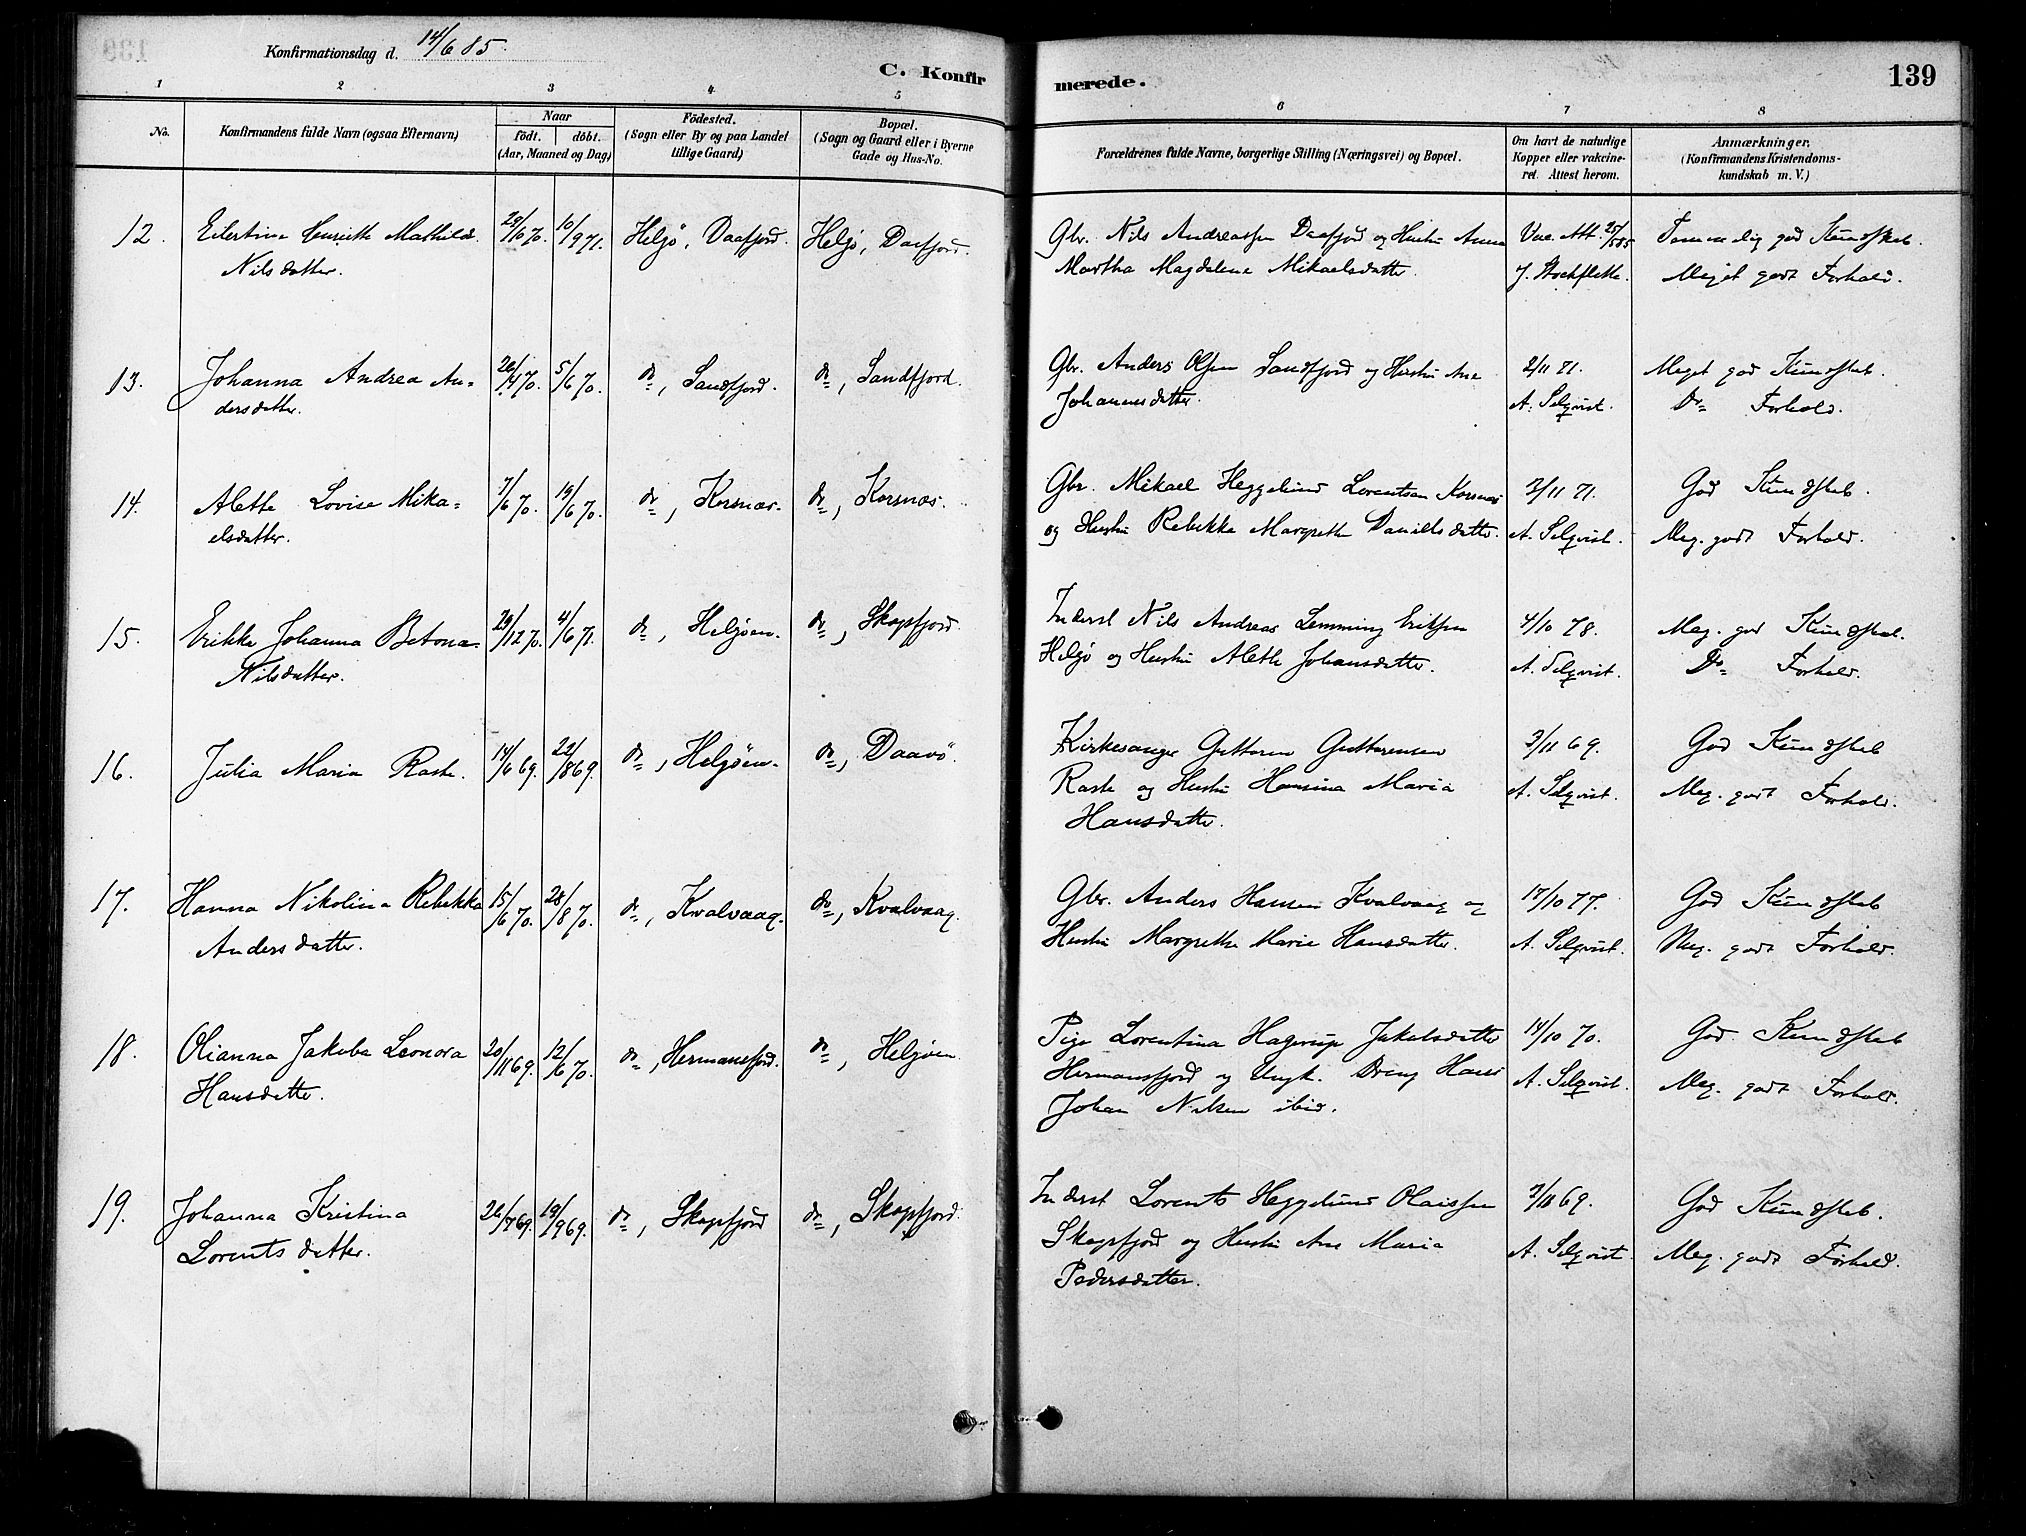 Konfirmationsdag d. 14/6 85.
C. Konfirmerede.
139
1 2 3 4 5 6 7 8
No.
Konfirmandens fulde Navn (ogsaa Efternavn)
Naar
født. døbt.
(Aar, Maaned og Dag)
Fødested.
(Sogn eller By og paa Landet
tillige Gaard)
Bopæl.
(Sogn og Gaard eller i Byerne
Gade og Hus-No.
Forældrenes fulde Navne, borgerlige Stilling (Næringsvei) og Bopæl.
Om havt de naturlige
Kopper eller vakcine-
ret. Attest herom.
Anmærkninger.
(Konfirmandens Kristendoms-
kundskab m. V.)
12. Eilertine Henriette Mathilde 29/10 70. 10/9 71. Helgø, Daafjord. Helgø, Daafjord. Gbr. Nils Andreassen Daafjord og Hustru Anna Vac. Att. 25/5 85 Temmelig god Kundskab.
Nilsdatter. Martha Magdalene Mikaelsdatter. J. Stockfleth. Meget godt Forhold.
13. Johanna Andrea An- 26/4 70. 5/6 70. do, Sandfjord. do, Sandfjord. Gbr. Anders Olsen Sandfjord og Hustru Ane 2/11 71. Meget god Kundskab.
dersdatter. Johannesdatter. A. Selqvist. Do Forhold.
14. Alette Lovise Mika= 7/6 70. 19/6 70. do, Korsnæs. do, Korsnæs. Gbr. Mikael Heggelund Lorentsen Korsnæs 2/11 71. God Kundskab.
elsdatter. og Hustru Rebekka Margrethe Danielsdatter. A. Selqvist. Meg. godt Forhold.
15. Erikka Johanna Betona= 29/12 70. 4/6 71. do, Helgøen. do, Skogsfjord. Inderst Nils Andreas Lemming Eriksen 4/10 78. Meg. god Kundskab.
Nilsdatter. Helgø og Hustru Aleth Johansdatter. A. Selqvist. Do Forhold.
16. Julia Maria Rask. 14/6 69. 22/8 69. do, Helgøen. do, Daavø. Kirkesanger Guttorm Guttormsen 3/11 69. God Kundskab
Rask og Hustru Hansina Maria A. Selqvist. Meg. godt Forhold.
Hansdatter.
17. Hanna Nikolina Rebekka 15/6 70. 28/8 70. do, Kvalvaag. do, Kvalvaag. Gbr. Anders Hansen Kvalvaag og 17/10 77. God Kundskab
Andersdatter. Hustru Margrethe Marie Hansdatter. A. Selqvist. Meg. godt Forhold.
18. Olianna Jakoba Leonora 20/11 69. 12/6 70. do, Hermansfjord. do, Helgøen. Pige Lorentina Hagerup Jakobsdatter 14/10 70. God Kundskab
Hansdatter. Hermansfjord og Ungk. Dreng Hans A. Selqvist. Meg. godt Forhold.
Johan Nilsen ibid.
19. Johanna Kristina 26/7 69. 19/9 69. do, Skogsfjord do, Skogsfjord. Inderst Lorents Heggelund Olaissen 3/11 69. God Kundskab.
Lorentsdatter. Skogsfjord og Hustru Ane Maria A. Selqvist. Meg. godt Forhold.
Pedersdatter.